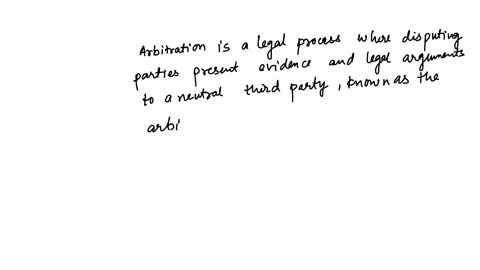 Arbitration is a legal process where disputing
parties present evidence and legal arguments
to a neutral third party, known as the
arbi